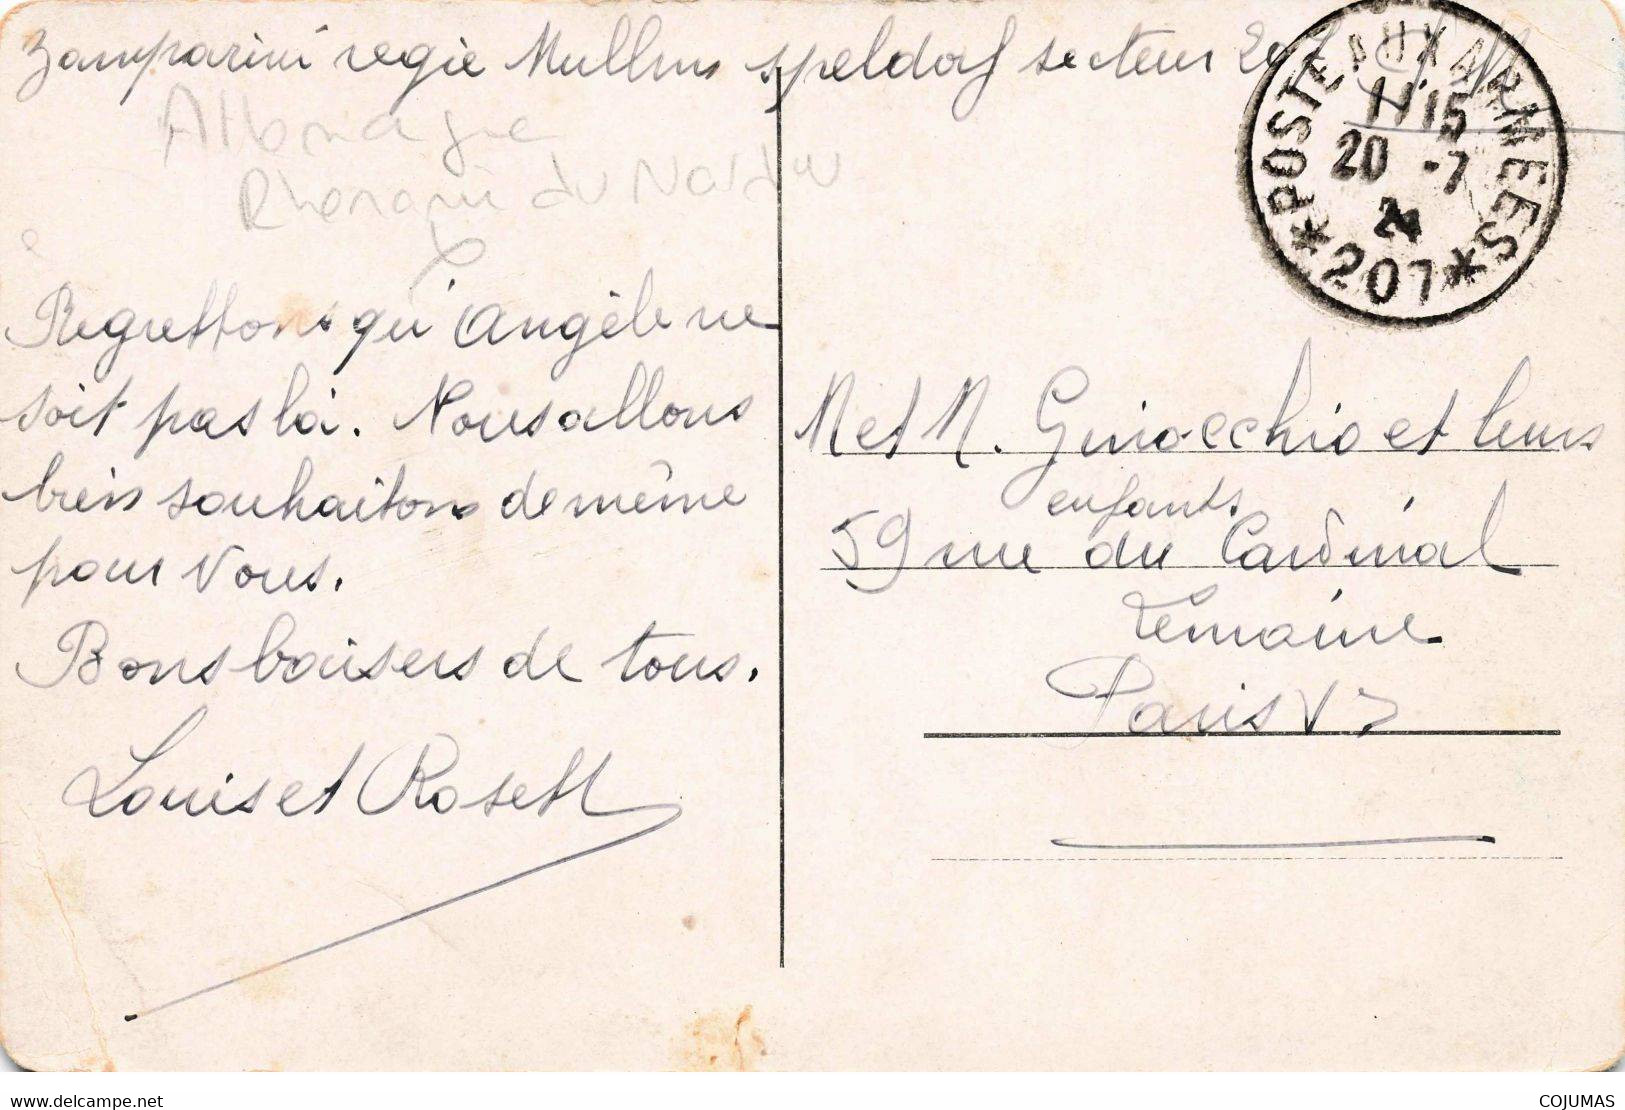 Zamparini regie Mullum speldorf secteur 207
Allemagne
Rhenanie du Nord
Regrettons qu'Angèle ne
soit pas là. Nous allons
bien souhaitons de même
pour vous.
Bons baisers de tous.
Louis et Rosett
POSTE AUX ARMEES
11 15
20 -7
24
*207*
M et M. Guiocchio et leurs
enfants
59 rue du Cardinal
Lemoine
Paris V
www.delcampe.net
COJUMAS